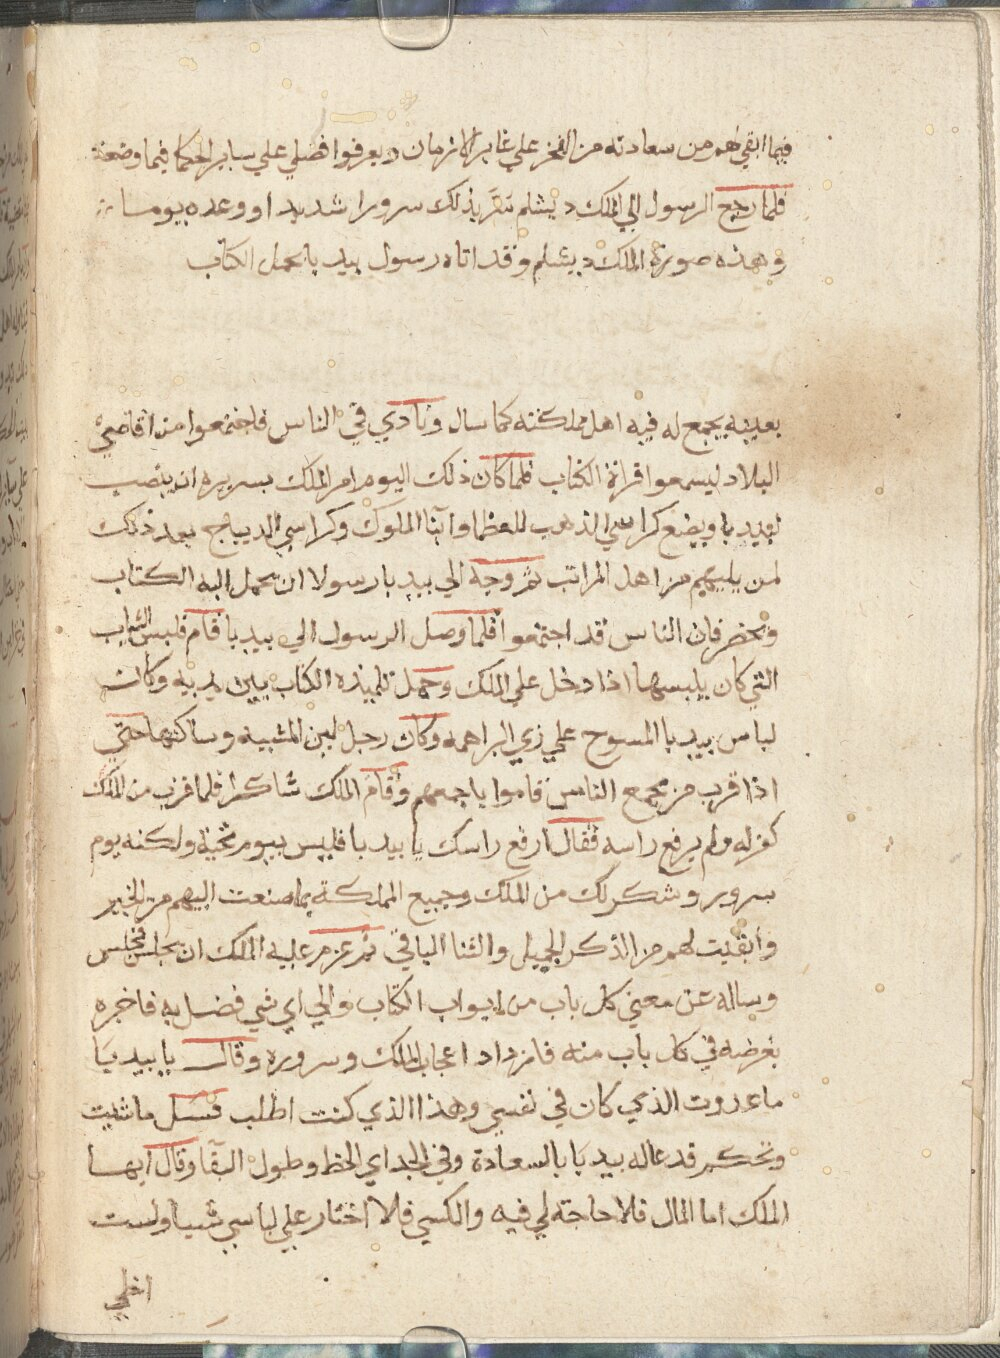 فيما ابقي لهم من سعادته من الفخر علي غابر الازمان ويعرفوا فضلي علي ساير الحكما فيما وضعته
فلما رجع الرسول الي الملك دبشلم سر بذلك سرورا شديدا ووعده يوما
وهذه صورة الملك دبشلم وقد اتاه رسول بيدبا بحمل الكتاب
بعينه يجمع له فيه اهل مملكته كما سال ونادي في الناس فاجتمعوا من اقاصي
البلاد ليسمعوا قراة الكتاب فلما كان ذلك اليوم امر الملك بسريره ان ينصب
لبيدبا ويضع كراسي الذهب للعظما وابنا الملوك وكراسي الديباج بعد ذلك
لمن يليهم من اهل المراتب ثم وجه الي بيدبا رسولا ان يحمل اليه الكتاب
ويحضر فان الناس قد اجتمعوا فلما وصل الرسول الي بيدبا قام فلبس الثياب
التي كان يلبسها اذا دخل علي الملك وحمل تلميذه الكتاب بين يديه وكان
لباس بيدبا المسوح علي زي البراهمه وكان رجل لين المشيه وساكنها حتي
اذا قرب من مجمع الناس قاموا باجمعهم وقام الملك شاكرا فلما قرب من الملك
كفر له ولم يرفع راسه فقال ارفع راسك يا بيدبا فليس بيوم تحية ولكنه يوم
سرور وشكر لك من الملك وجميع المملكة بما صنعت اليهم من الخير
وابقيت لهم من الذكر الجميل والثنا الباقي ثم عزم عليه الملك ان يجلس فجلس
وساله عن معني كل باب من ابواب الكتاب والي اي شي فضل به فاخبره
بغرضه في كل باب منه فازداد اعجاب الملك وسروره وقال يا بيدبا
ما عدوت الذي كان في نفسي وهذا الذي كنت اطلب فسل ما شيت
وتحكم فدعا له بيدبا بالسعادة وفي الجد اي الحظ وطول البقا وقال ايها
الملك اما المال فلا حاجة لي فيه والكسي فلا اختار علي لباسي شيا ولست
اخلي